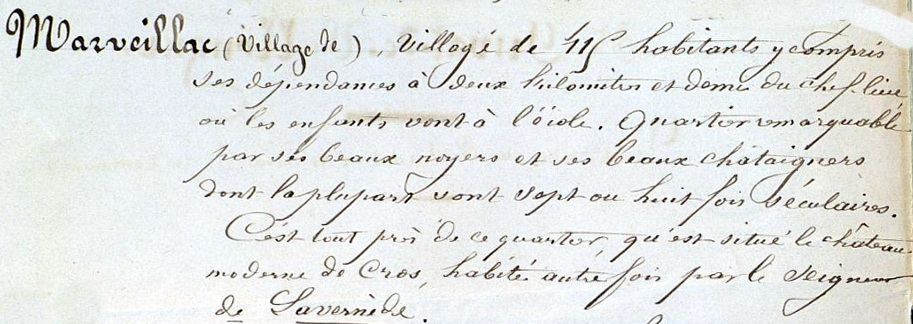 Marveillac (Village de), Village de 115 habitants y compris
ses dépendances à deux kilomètres et demi du chef-lieu
où les enfants vont à l'école. Quartier remarquable
par ses beaux noyers et ses beaux châtaigners
dont la plupart sont sept ou huit fois séculaires.
C'est tout près de ce quartier qu'est situé le château
moderne de Cros, habité autrefois par le Seigneur
de Lavernède.